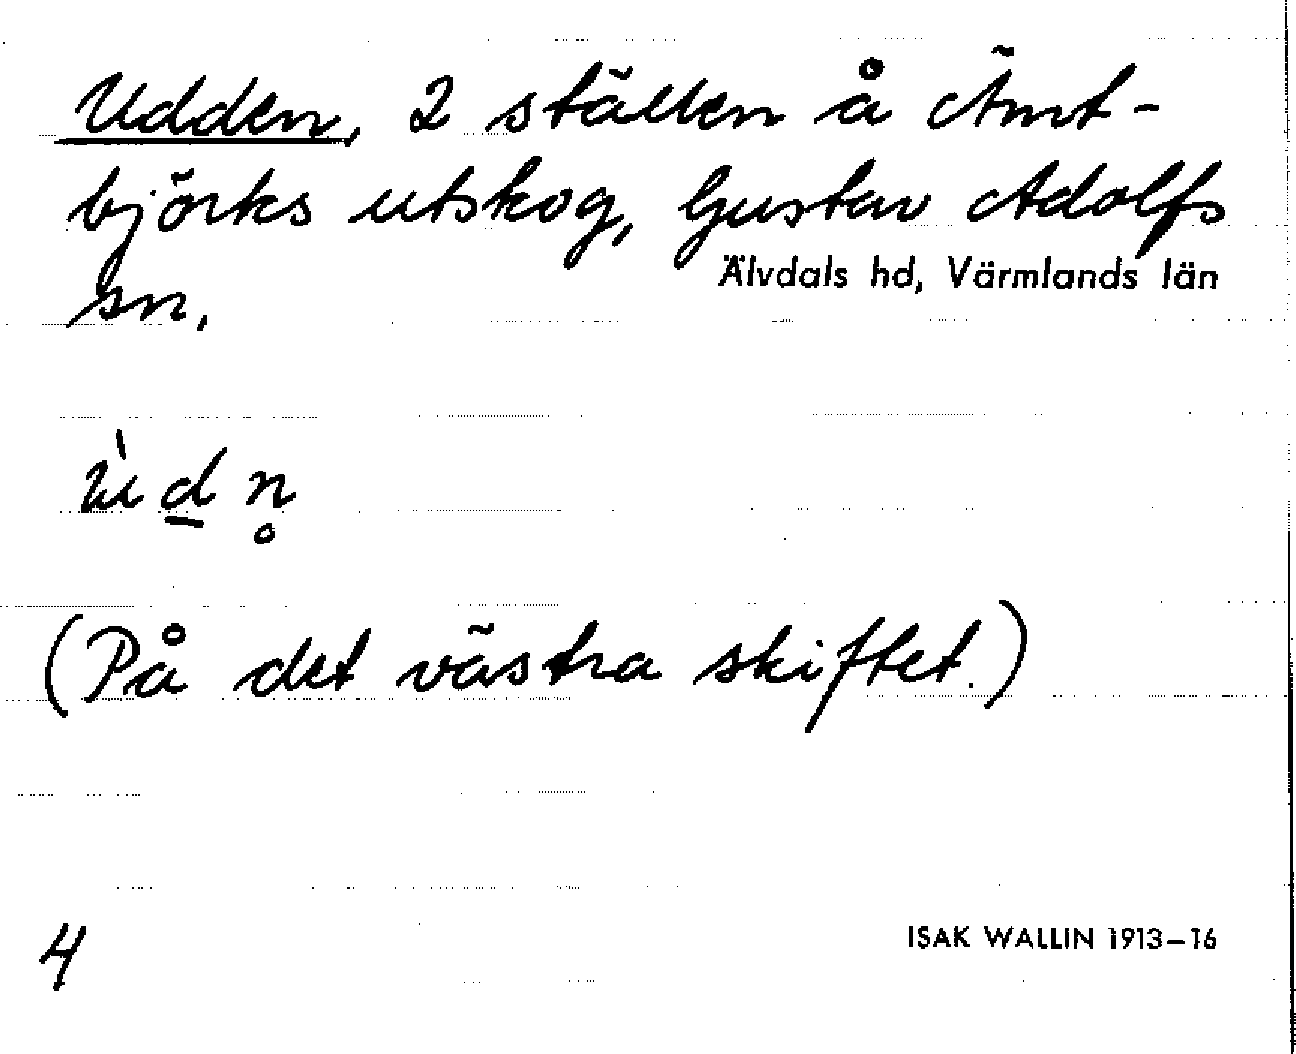 Udden, 2 ställen å Ämt-
björks utskog, Gustav Adolfs
Älvdals hd, Värmlands län
sn,
ùd̲n̥
(På det västra skiftet.)
4
ISAK WALLIN 1913–16